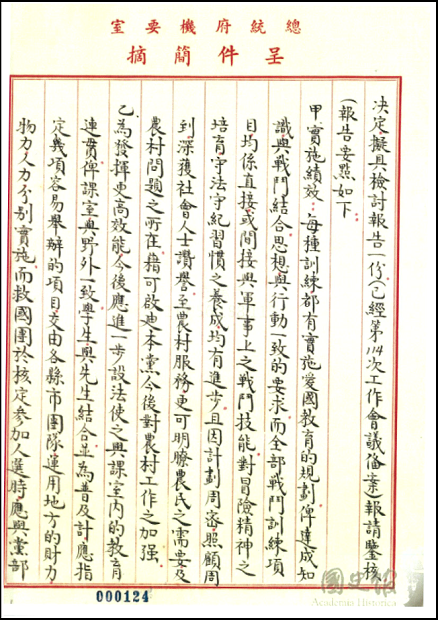 總統府機要室
呈件簡摘
決定擬具檢討報告一份(已經第114次工作會議備案)報請鑒核
(報告要點如下
甲實施績效:每種訓練都有實施愛國教育的規劃俾達成知
識與戰鬥結合思想與行動一致的要求而全部戰鬥訓練項
目均係直接或間接與軍事上之戰鬥技能對冒險精神之
培育守法守紀習慣之養成均有進步且因計劃周密照顧周
到深獲社會人士讚譽至農村服務更可明瞭農民之需要及
農村問題之所在藉可啟廸本黨今後對農村工作之加強
乙為發揮更高效能今後應進一步設法使之與課室內的教育
連貫俾課室與野外一致學生與先生結合並為普及計應指
定幾項容易舉辦的項目交由各縣市團隊運用地方的財力
物力人力分別實施而救國團於核定參加人選時應與黨部
000124
國史館
Academia Historica